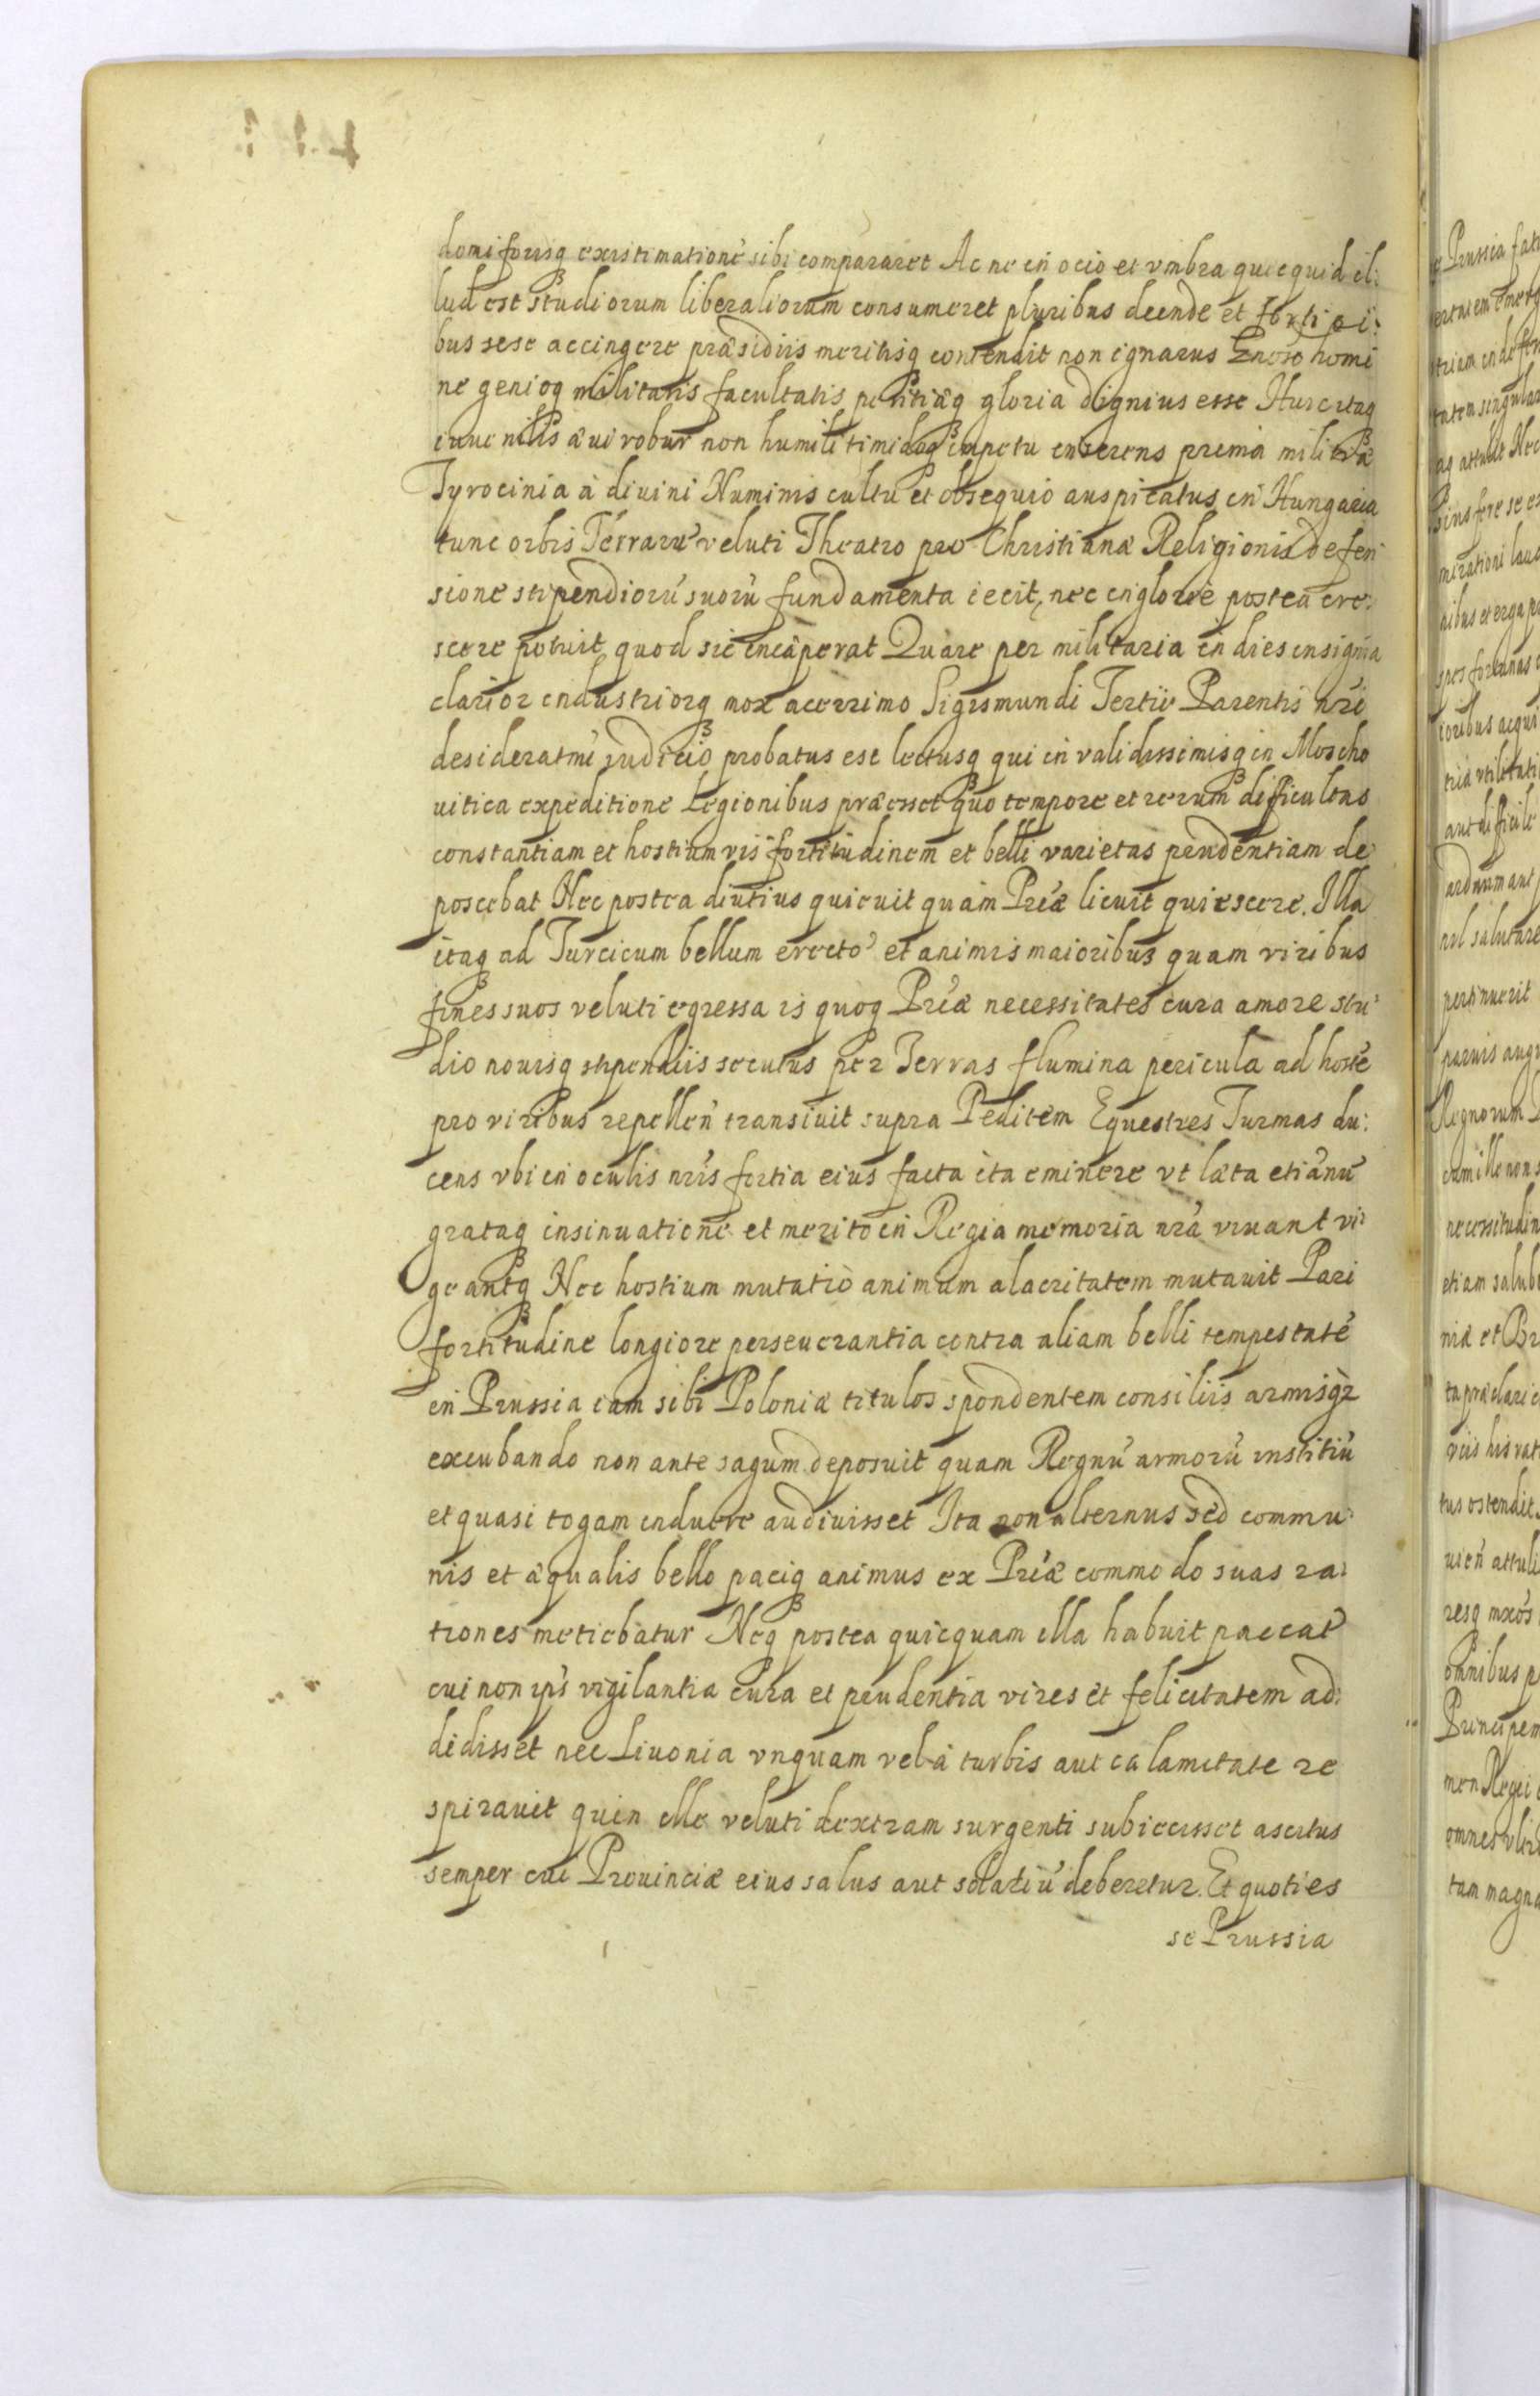 domi forisq existimationē sibi compararet Ac ne in ocio et vmbra quicquid il:
lud est studiorum liberaliorum consumeret pluribus deinde et fortiori:
bus sese accingere præsidiis meritisq contendit non ignarus homi
ne genioq militaris facultatis peritiæq gloria dignius esse Huic itaq
iuuenilis æui robur non humili timidoq impetu inserens prima militiæ
Tyrocinia à diuini Numinis cultu et obsequio auspicatus in Hungaria
tunc orbis Terrarū veluti Theatro pro Christianæ Religionis defen
sione stipendiorū suorū fundamenta iecit, nec inglorie postea cre:
scere potuit quod sic incæperat Quare per militaria in dies insignia
clarior industriorq mox acerrimo Sigismundi Tertii Parentis nr̄i
desideratmi iudicio probatus est lectusq qui in validissimisq in Moscho
uitica expeditione Legionibus præesset quo tempore et rerum difficultas
constantiam et hostium vis fortitudinem et belli varietas prudentiam de
poscebat Nec postea diutius quieuit quàm Pr̄iæ licuit quiescere. Illa
itaq ad Turcicum bellum erecto et animis maioribus quam viribus
fines suos veluti egressa is quoq Pr̄iæ necessitates cura amore stu:
dio nouisq stipendiis secutus per Terras flumina pericula ad hostē
pro viribus repellen̄ transiuit supra Peditem Equestres Turmas du:
cens vbi in oculis nr̄is fortia eius facta ita eminere vt læta etiānū
grataq insinuatione et merito in Regia memoria nr̄a viuant vi:
geantq Nec hostium mutatio animum alacritatem mutauit Pari
fortitudine longiore perseuerantia contra aliam belli tempestatē
in Prussia iam sibi Poloniæ titulos spondentem consiliis armisqz
excubando non ante sagum deposuit quam Regnū armorū institiū
et quasi togam induere audiuisset Ita non alternus sed commu:
nis et æqualis bello paciq animus ex Pr̄iæ commodo suas ra:
tiones metiebatur Neq postea quicquam illa habuit paccat̄
cui non ips̄ vigilantia cura et prudentia vires et felicitatem ad:
didisset nec Liuonia vnquam vel à turbis aut calamitate re
spirauit quin ille veluti dextram surgenti subiecisset ascitus
semper cui Prouinciæ eius salus aut solatiū deberetur. Et quoties
se Prussia